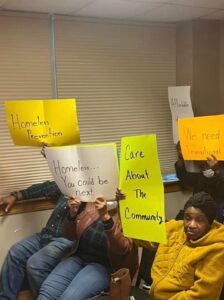 Homeless
Prevention
Homeless...
You could be
next
Care
About
The
Community
Affordable
We need
Transitional